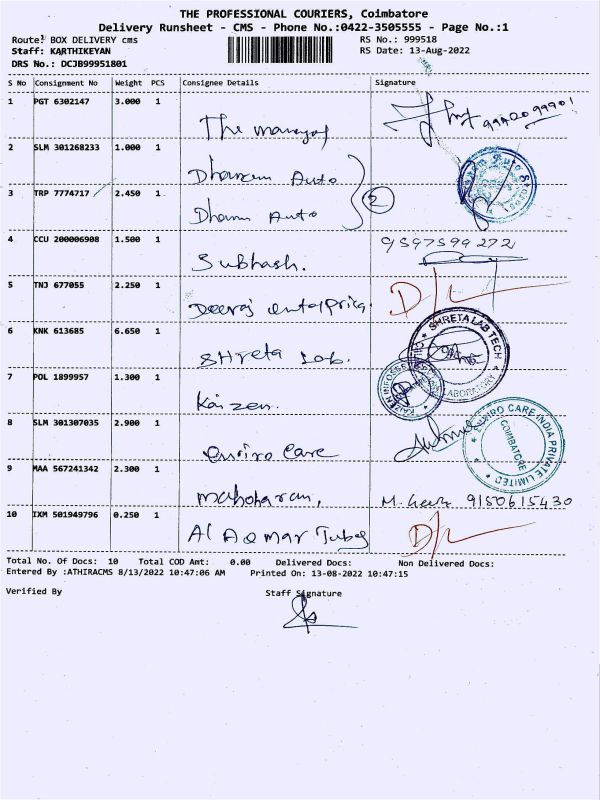 THE PROFESSIONAL COURIERS, Coimbatore
Delivery Runsheet - CMS - Phone No.:0422-3505555 - Page No.:1
Route: BOX DELIVERY cms RS No.: 999518
Staff: KARTHIKEYAN RS Date: 13-Aug-2022
DRS No.: DCJB99951801
S No Consignment No Weight PCS Consignee Details Signature
1 PGT 6302147 3.000 1
The manager 9942099901
2 SLM 301268233 1.000 1
Dhanam Auto
3 TRP 7774717 2.450 1 2
Dhanam Auto
4 CCU 200006908 1.500 1 9597599272
Subhash.
5 TNJ 677055 2.250 1 D/
Deeraj enterprice.
6 KNK 613685 6.650 1 SHRETA LAB TECH LABORATORY
SHreta Lab.
7 POL 1899957 1.300 1
Kaizen.
8 SLM 301307035 2.900 1 ENVIRO CARE INDIA PRIVATE LIMITED COIMBATORE
Enviro Care
9 MAA 567241342 2.300 1
Manoharan, 9150615430
10 IXM 501949796 0.250 1
Al Aqmar Tubes D/
Total No. Of Docs: 10 Total COD Amt: 0.00 Delivered Docs: Non Delivered Docs:
Entered By :ATHIRACMS 8/13/2022 10:47:06 AM Printed On: 13-08-2022 10:47:15
Verified By Staff Signature